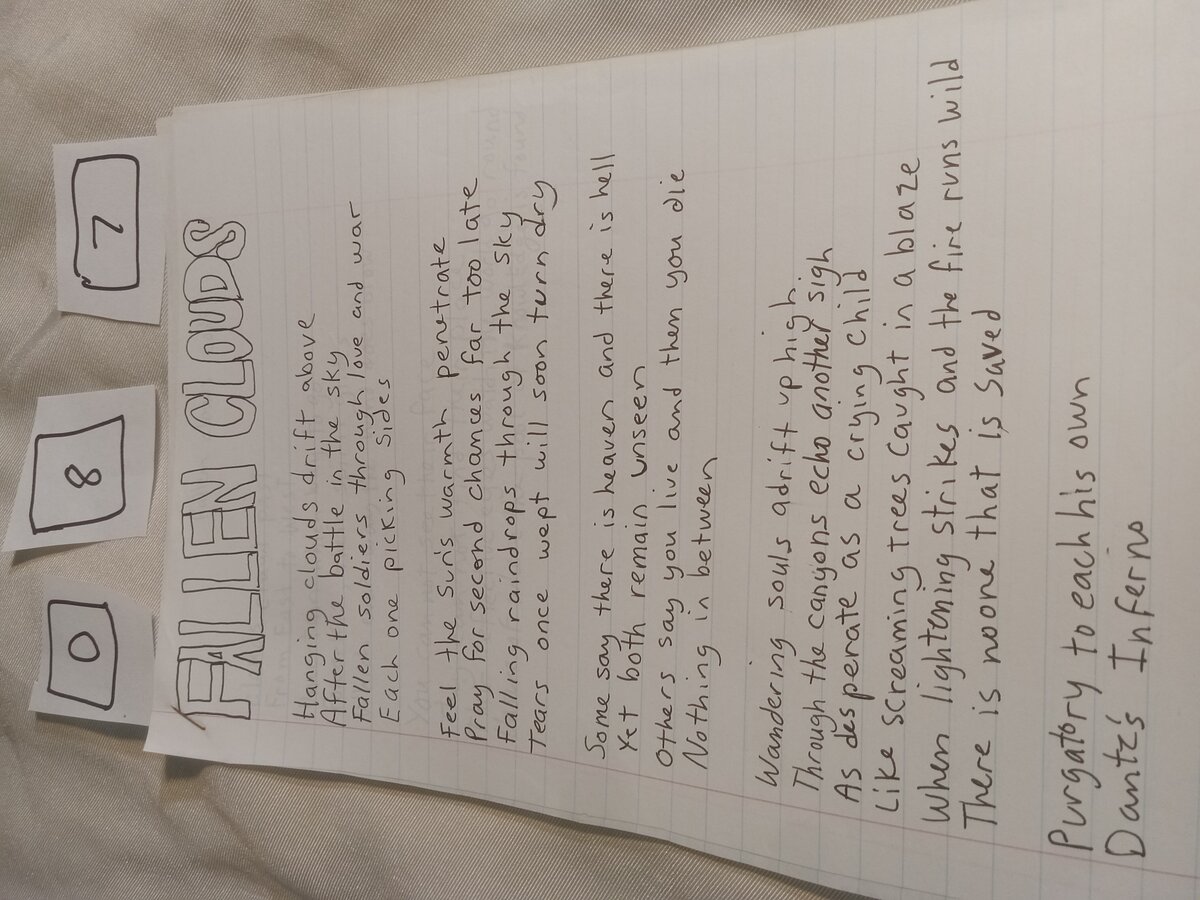 0 8 7
FALLEN CLOUDS
Hanging clouds drift above
After the battle in the sky
Fallen soldiers through love and war
Each one picking sides
Feel the sun's warmth penetrate
Pray for second chances far too late
Falling raindrops through the sky
Tears once wept will soon turn dry
Some say there is heaven and there is hell
Yet both remain unseen
Others say you live and then you die
Nothing in between
Wandering souls adrift up high
Through the canyons echo another sigh
As desperate as a crying child
Like screaming trees caught in a blaze
When lightening strikes and the fire runs wild
There is noone that is saved
Purgatory to each his own
Dante's Inferno